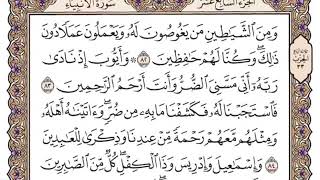 الجزء السابع عشر
سورة الأنبياء
وَمِنَ الشَّيَاطِينِ مَن يَغُوصُونَ لَهُ وَيَعْمَلُونَ عَمَلًا دُونَ
ذَٰلِكَ وَكُنَّا لَهُمْ حَافِظِينَ ٨٢ وَأَيُّوبَ إِذْ نَادَىٰ
رَبَّهُ أَنِّي مَسَّنِيَ الضُّرُّ وَأَنتَ أَرْحَمُ الرَّاحِمِينَ ٨٣
فَاسْتَجَبْنَا لَهُ فَكَشَفْنَا مَا بِهِ مِن ضُرٍّ وَآتَيْنَاهُ أَهْلَهُ
وَمِثْلَهُم مَّعَهُمْ رَحْمَةً مِّنْ عِندِنَا وَذِكْرَىٰ لِلْعَابِدِينَ
٨٤ وَإِسْمَاعِيلَ وَإِدْرِيسَ وَذَا الْكِفْلِ كُلٌّ مِّنَ الصَّابِرِينَ